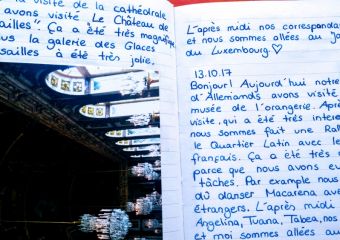 la visite de la cathédrale
avons visité "Le Château de
sailles" Ça a été très magnifique
la galerie des Glaces
sailles a été très jolie.
L'après midi nos correspondants
et nous sommes allées au
du Luxembourg.♡
13.10.17
Bonjour! Aujourd'hui notre
d'Allemands avons visité
musée de l'orangerie. Après
visite, qui a été très inter
nous sommes fait une Ral
le Quartier Latin avec le
français. Ça a été très
parce que nous avons eu
tâches. Par exemple nous
dû danser Macarena avec
étrangers. L'après midi
Angelina, Tuana, Tabea, nos
et moi sommes allées au